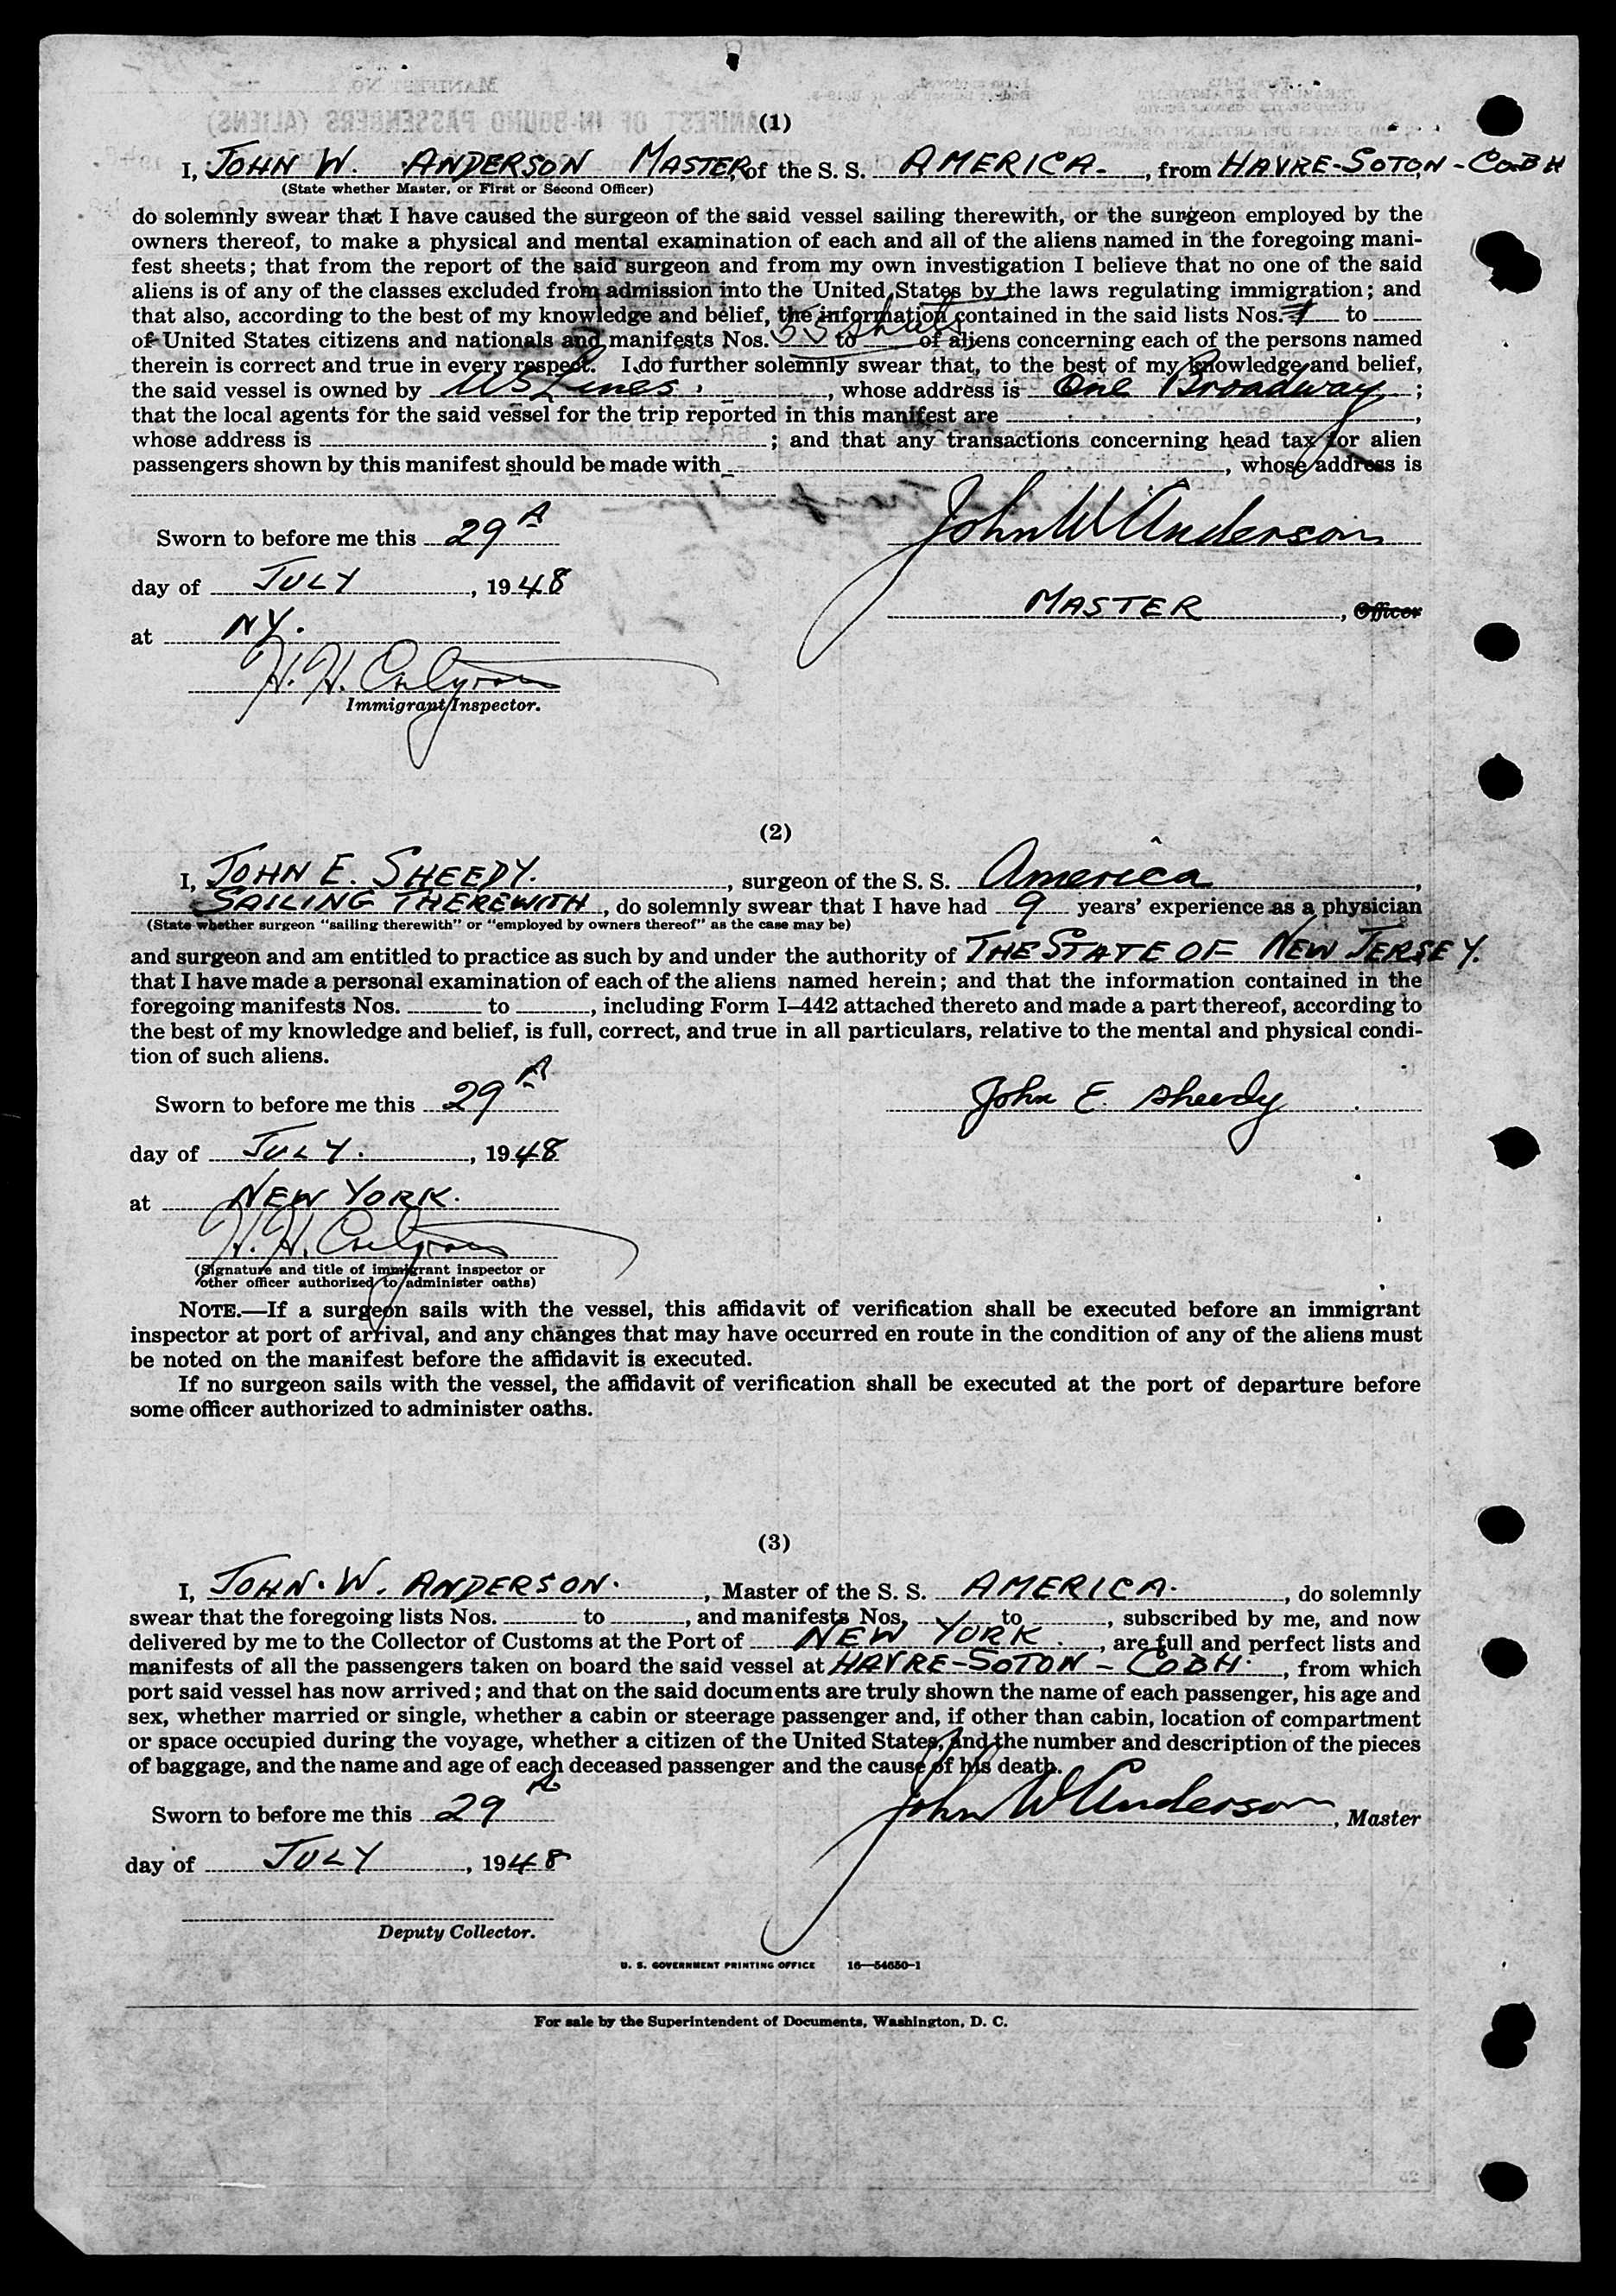 (1)
I, JOHN W. ANDERSON MASTER, of the S. S. AMERICA, from HAVRE-SOTON-COBH
(State whether Master, or First or Second Officer)
do solemnly swear that I have caused the surgeon of the said vessel sailing therewith, or the surgeon employed by the
owners thereof, to make a physical and mental examination of each and all of the aliens named in the foregoing mani-
fest sheets; that from the report of the said surgeon and from my own investigation I believe that no one of the said
aliens is of any of the classes excluded from admission into the United States by the laws regulating immigration; and
that also, according to the best of my knowledge and belief, the information contained in the said lists Nos. 1 to
of United States citizens and nationals and manifests Nos. 55 sheets to of aliens concerning each of the persons named
therein is correct and true in every respect. I do further solemnly swear that, to the best of my knowledge and belief,
the said vessel is owned by US Lines, whose address is One Broadway;
that the local agents for the said vessel for the trip reported in this manifest are ,
whose address is ; and that any transactions concerning head tax for alien
passengers shown by this manifest should be made with , whose address is
Sworn to before me this 29
John W Anderson
day of JULY, 1948
MASTER, Officer
at NY.
H. H.
Immigrant Inspector.
(2)
I, JOHN E. SHEEDY., surgeon of the S. S. America,
SAILING THEREWITH, do solemnly swear that I have had 9 years' experience as a physician
(State whether surgeon "sailing therewith" or "employed by owners thereof" as the case may be)
and surgeon and am entitled to practice as such by and under the authority of THE STATE OF NEW JERSEY.
that I have made a personal examination of each of the aliens named herein; and that the information contained in the
foregoing manifests Nos. to , including Form I-442 attached thereto and made a part thereof, according to
the best of my knowledge and belief, is full, correct, and true in all particulars, relative to the mental and physical condi-
tion of such aliens.
Sworn to before me this 29
John E. Sheedy
day of JULY., 1948
at NEW YORK.
H. H.
(Signature and title of immigrant inspector or
other officer authorized to administer oaths)
NOTE.—If a surgeon sails with the vessel, this affidavit of verification shall be executed before an immigrant
inspector at port of arrival, and any changes that may have occurred en route in the condition of any of the aliens must
be noted on the manifest before the affidavit is executed.
If no surgeon sails with the vessel, the affidavit of verification shall be executed at the port of departure before
some officer authorized to administer oaths.
(3)
I, JOHN. W. ANDERSON., Master of the S. S. AMERICA., do solemnly
swear that the foregoing lists Nos. to , and manifests Nos. to , subscribed by me, and now
delivered by me to the Collector of Customs at the Port of NEW YORK., are full and perfect lists and
manifests of all the passengers taken on board the said vessel at HAVRE-SOTON-COBH., from which
port said vessel has now arrived; and that on the said documents are truly shown the name of each passenger, his age and
sex, whether married or single, whether a cabin or steerage passenger and, if other than cabin, location of compartment
or space occupied during the voyage, whether a citizen of the United States, and the number and description of the pieces
of baggage, and the name and age of each deceased passenger and the cause of his death.
Sworn to before me this 29
John W Anderson, Master
day of JULY, 1948
Deputy Collector.
U. S. GOVERNMENT PRINTING OFFICE 16—54650-1
For sale by the Superintendent of Documents, Washington, D. C.